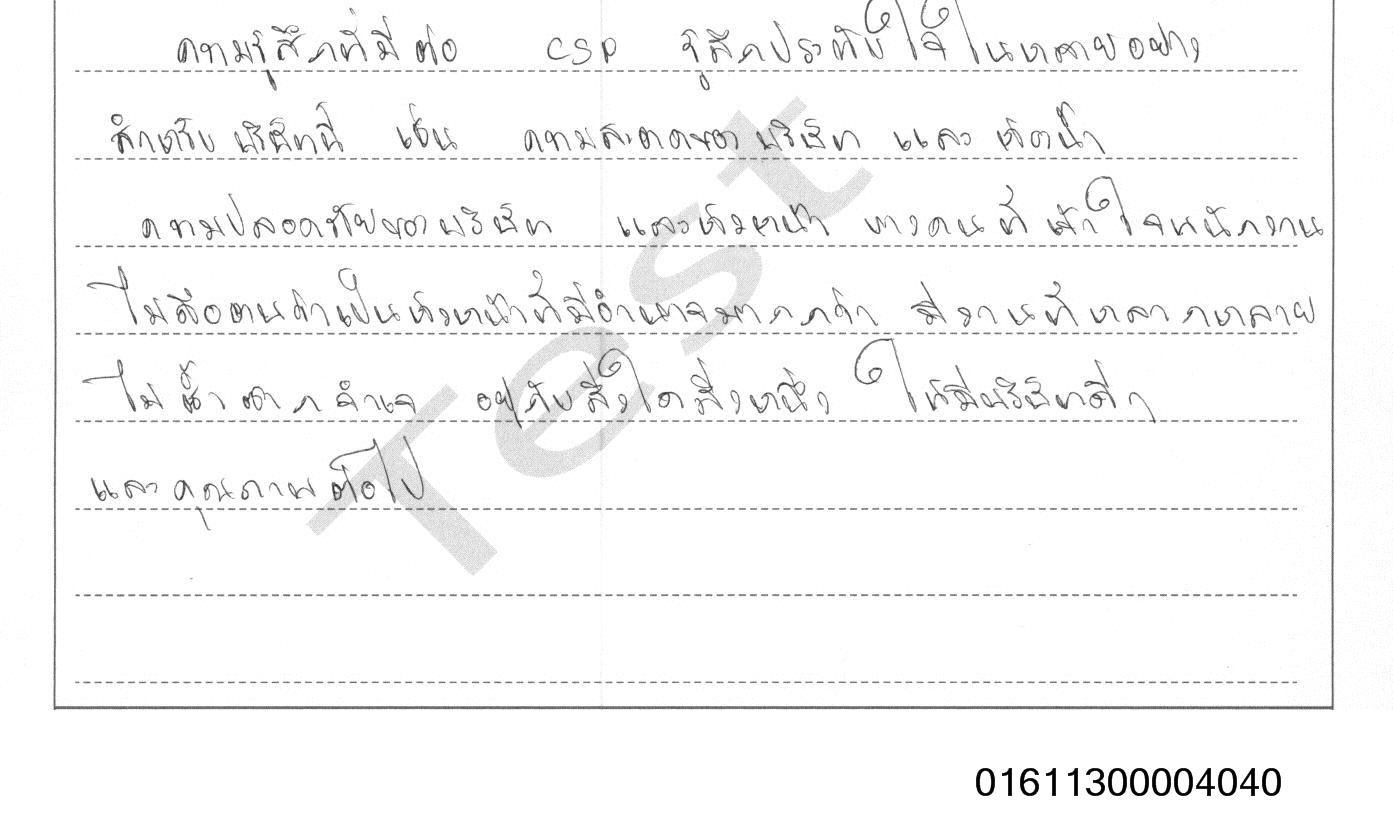 ความรู้สึกที่มีต่อ CSP รู้สึกประทับใจในหลายอย่าง
สำหรับบริษัทนี้ เช่น ความสะอาดของบริษัท และ ห้องน้ำ
ความปลอดภัยของบริษัท และหัวหน้า บางคนที่เข้าใจพนักงาน
ไม่ถือตนว่าเป็นหัวหน้าที่มีอำนาจมากกว่า มีงานที่หลากหลาย
ไม่ซ้ำซากจำเจ อยู่กับสิ่งใดสิ่งหนึ่ง ให้มีบริษัทดีๆ
และคุณภาพต่อไป
Test
01611300004040